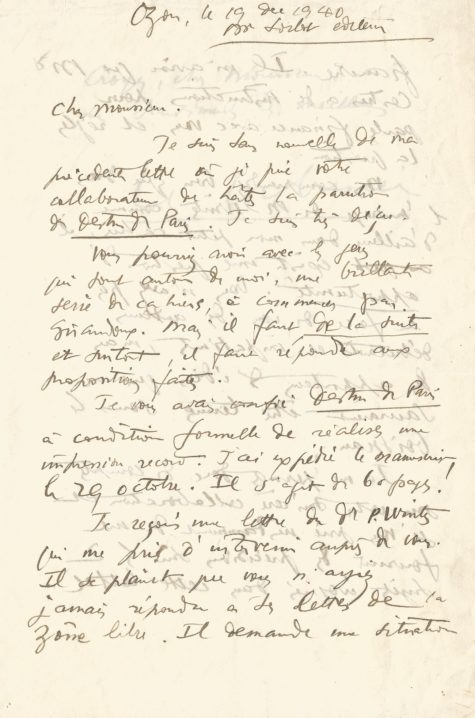 Ozon, le 19 dec 1940
par Sorlot editeur
Cher Monsieur.
Je suis sans nouvelle de ma
précédente lettre où je priè votre
collaborateur de hâter la parution
de destin de Paris. Je suis très déçu.
Vous pourriez avoir avec les gens
qui sont autour de moi, une brillante
serie de cahiers, à commencer par
Giraudoux. Mais il faut de la suite
et surtout, il faut répondre aux
propositions faites.
Je vous avais confié Destin de Paris
à condition formelle de réaliser une
impression record. J'ai expédié le manuscrit
le 29 octobre. Il s'agit de 60 pages!
Je reçois une lettre du Dr P. Winter
qui me prie d'intervenir auprès de vous.
Il se plaint que vous n'ayez
jamais répondu à ses lettres de la
zône libre. Il demande une situation